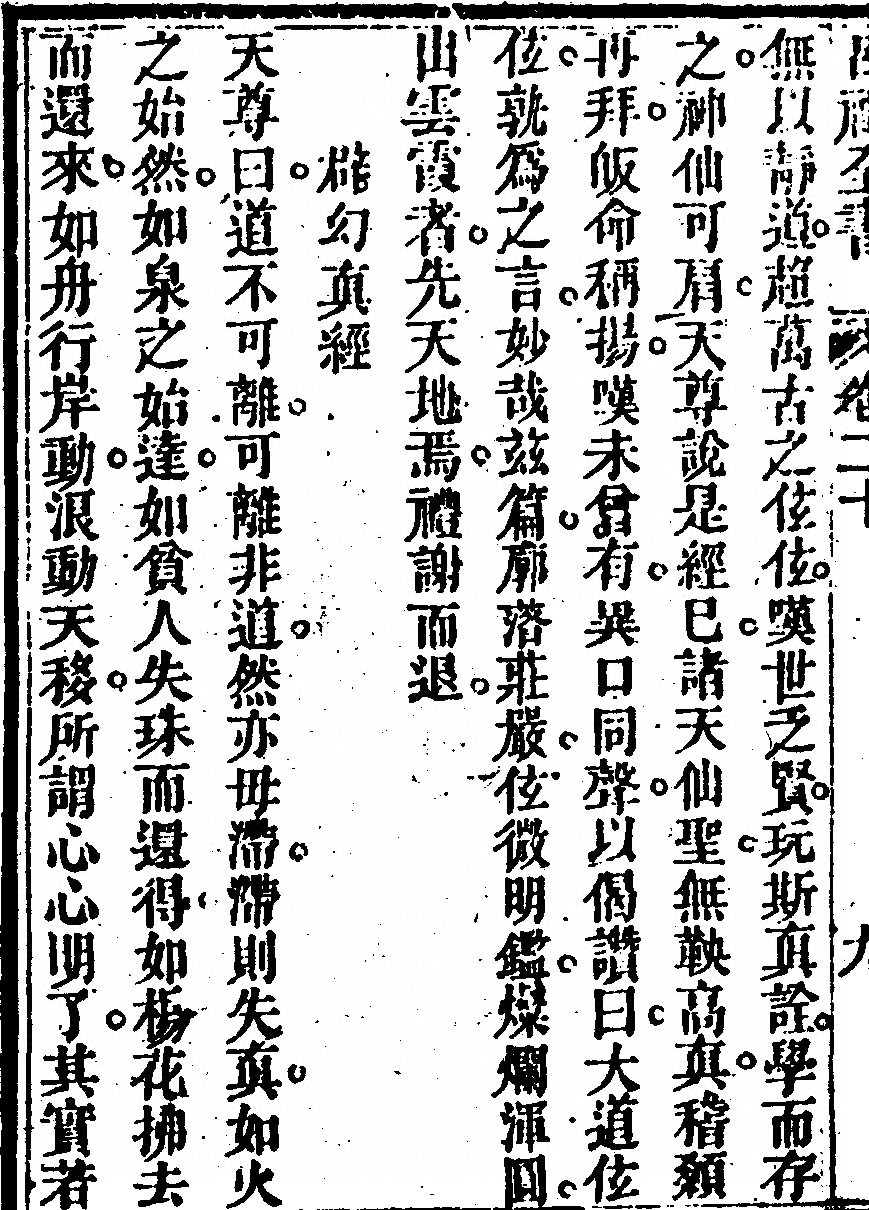 呂祖全書　卷二十　九
無以靜道超萬古之伭伭嘆世乏賢玩斯真詮學而存
之神仙可肩天尊說是經已諸天仙聖無鞅高真稽顙
再拜皈命稱揚嘆未曾有異口同聲以偈讚曰大道伭
伭孰爲之言妙哉茲篇廓落莊嚴伭微明鑑燦爛渾圓
出雲霞者先天地焉禮謝而退
辟幻真經
天尊曰道不可離可離非道然亦毋滯滯則失真如火
之始然如泉之始達如貧人失珠而還得如楊花拂去
而還來如舟行岸動浪動天移所謂心心明了其實若